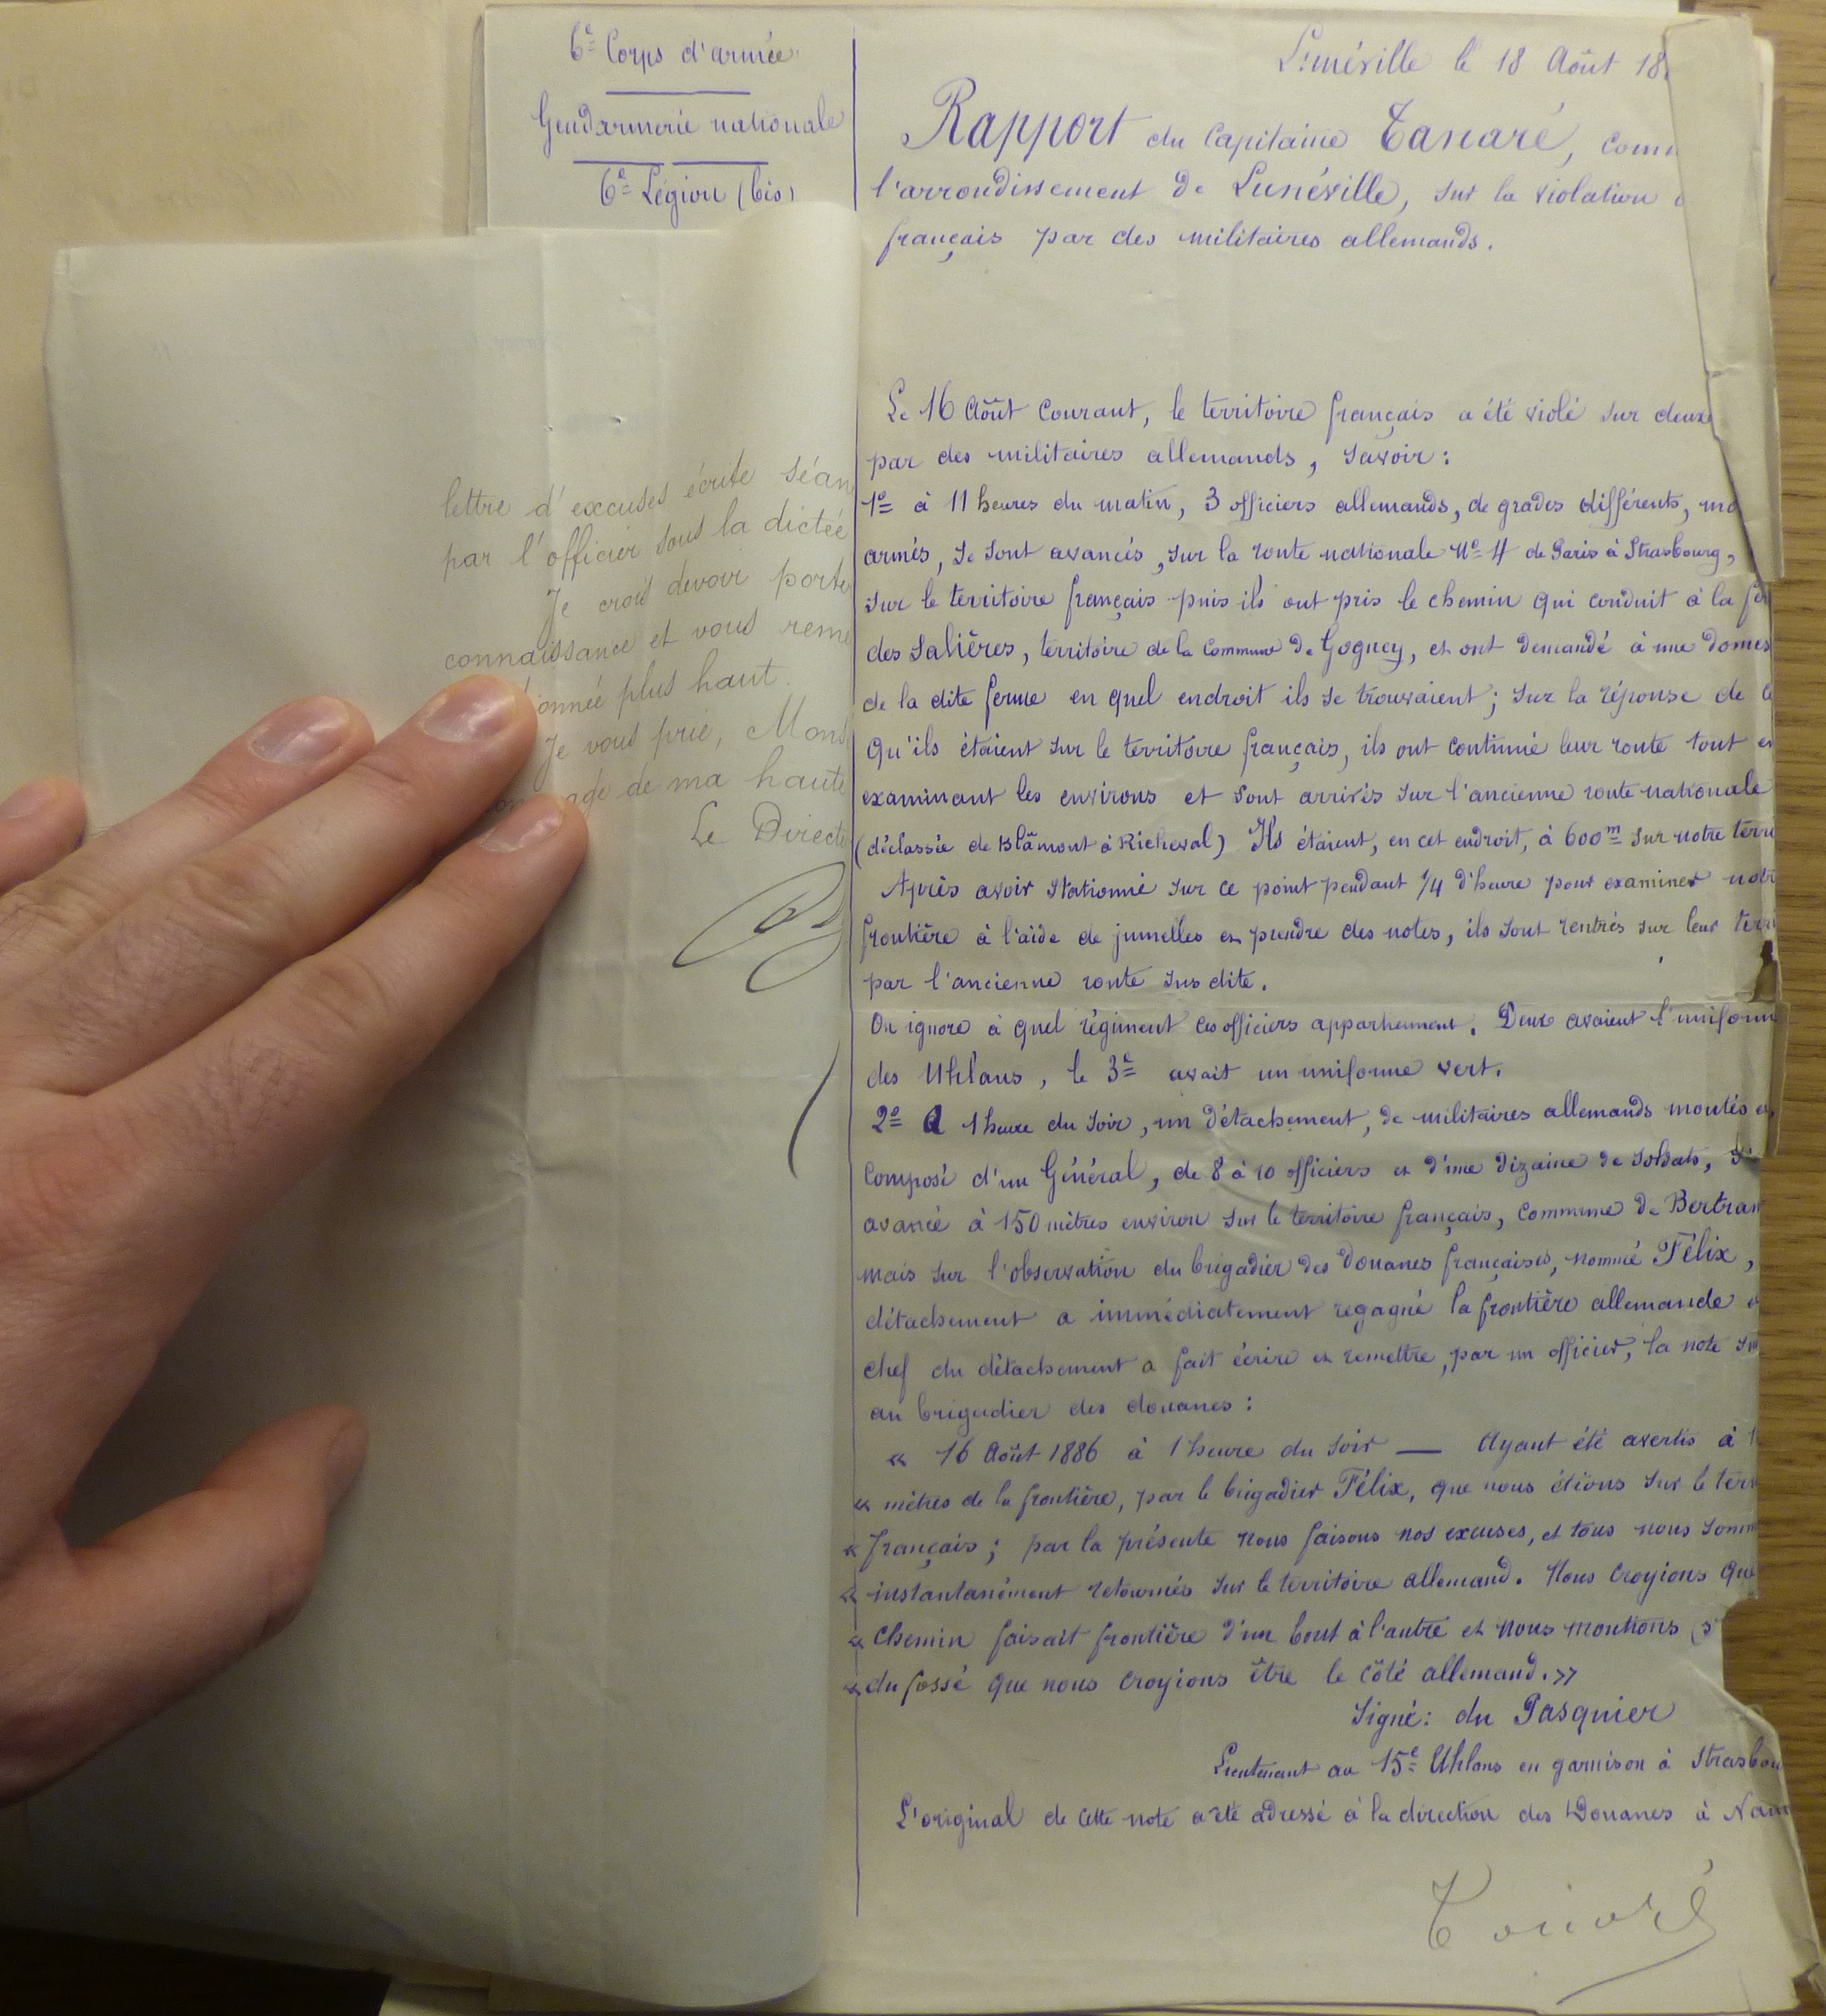 6e Corps d'armée
Gendarmerie nationale
6e Légion (bis)
Lunéville le 18 Août 18
Rapport du Capitaine Tanaré, comm
l'arrondissement de Lunéville, sur la violation
français par des militaires allemands.
Le 16 Août Courant, le territoire français a été violé sur deux
par des militaires allemands, savoir :
1º à 11 heures du matin, 3 officiers allemands, de grades différents, mo
armés, se sont avancés, sur la route nationale Nº 4 de Paris à Strasbourg,
sur le territoire français puis ils ont pris le chemin qui conduit à la fer
des Salières, territoire de la Commune de Gogney, et ont demandé à une domes
de la dite ferme en quel endroit ils se trouvaient ; sur la réponse de
qu'ils étaient sur le territoire français, ils ont continué leur route tout en
examinant les environs et sont arrivés sur l'ancienne route nationale
(déclassée de Blâmont à Richeval) Ils étaient, en cet endroit, à 600m sur notre terri
Après avoir stationné sur ce point pendant 1/4 d'heure pour examiner notr
frontière à l'aide de jumelles et prendre des notes, ils sont rentrés sur leur terri
par l'ancienne route sus dite.
On ignore à quel régiment ces officiers appartiennent. Deux avaient l'uniform
des Uhlans, le 3e avait un uniforme vert.
2º A 1 heure du soir, un détachement, de militaires allemands montés et
Composé d'un Général, de 8 à 10 officiers et d'une dizaine de soldats, s'
avancé à 150 mètres environ sur le territoire français, Commune de Bertram
mais sur l'observation du brigadier des Douanes françaises, nommé Félix,
détachement a immédiatement regagné la frontière allemande
chef du détachement a fait écrire et remettre, par un officier, la note
au brigadier des douanes :
« 16 Août 1886 à 1 heure du soir — Ayant été avertis à 1
« mètres de la frontière, par le brigadier Félix, que nous étions sur le terr
« français ; par la présente nous faisons nos excuses, et tous nous somm
« instantanément retournés sur le territoire allemand. Nous croyions que
« Chemin faisait frontière d'un bout à l'autre et nous montions
« du fossé que nous croyions être le côté allemand. »
Signé : du Pasquier
Lieutenant au 15e Uhlans en garnison à Strasbou
L'original de cette note a été adressé à la direction des Douanes à Nan
Tanaré
lettre d'excuses écrite séan
par l'officier sous la dictée
Je crois devoir porte
connaissance et vous reme
onnée plus haut.
Je vous prie, Mons
age de ma haute
Le Directe